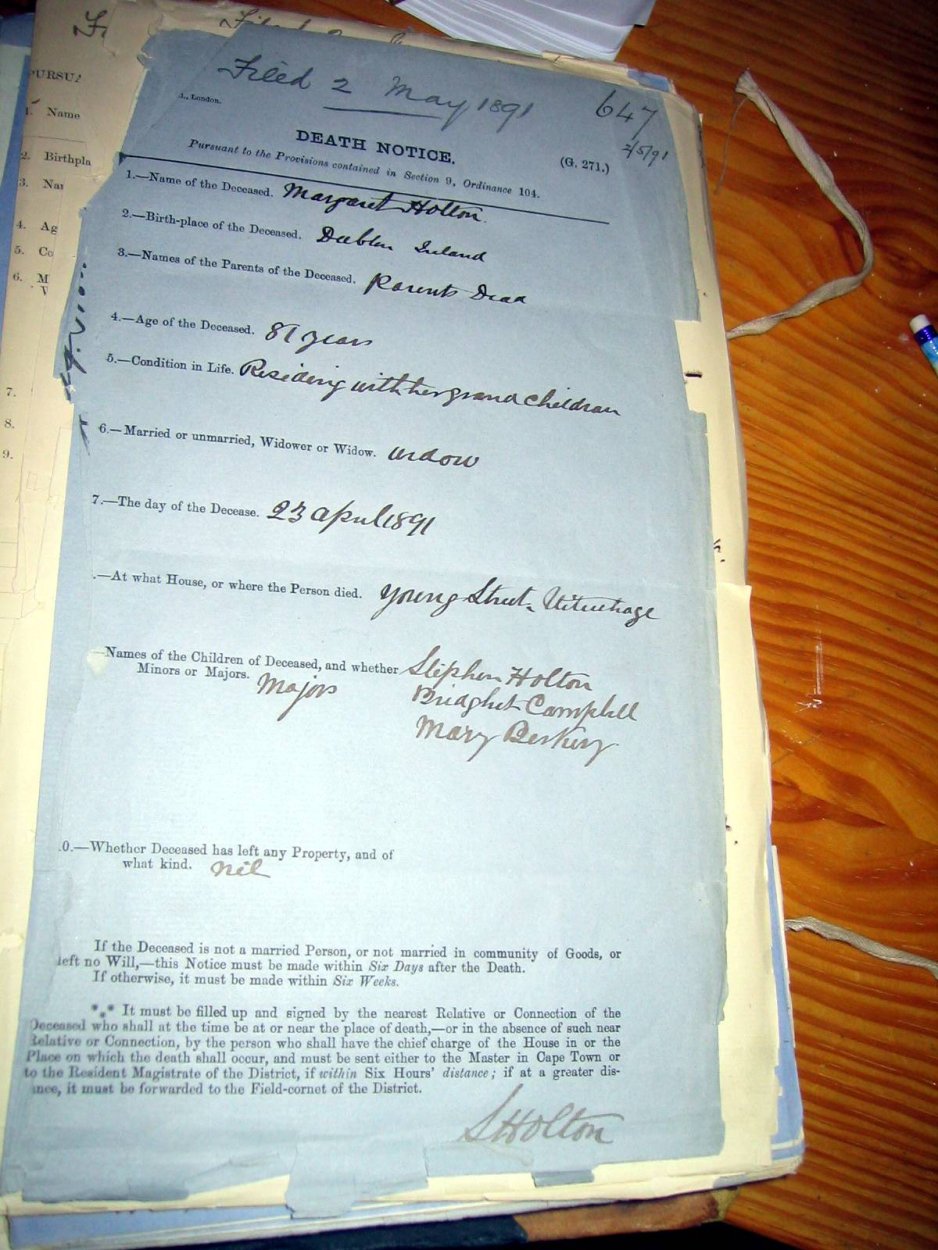 Filed 2 May 1891
647
2/5/91
DEATH NOTICE.
(G. 271.)
Pursuant to the Provisions contained in Section 9, Ordinance 104.
1.—Name of the Deceased. Margaret Holton
2.—Birth-place of the Deceased. Dublin Ireland
3.—Names of the Parents of the Deceased. Parents Dead
4.—Age of the Deceased. 87 years
5.—Condition in Life. Residing with her grand children
6.—Married or unmarried, Widower or Widow. widow
7.—The day of the Decease. 23 April 1891
.—At what House, or where the Person died. Young Street, Uitenhage
Names of the Children of Deceased, and whether Stephen Holton
Minors or Majors. Majors Bridghet Campbell
Mary Berkery
.0.—Whether Deceased has left any Property, and of
what kind. nil
If the Deceased is not a married Person, or not married in community of Goods, or
left no Will,—this Notice must be made within Six Days after the Death.
If otherwise, it must be made within Six Weeks.
*** It must be filled up and signed by the nearest Relative or Connection of the
Deceased who shall at the time be at or near the place of death,—or in the absence of such near
Relative or Connection, by the person who shall have the chief charge of the House in or the
Place on which the death shall occur, and must be sent either to the Master in Cape Town or
to the Resident Magistrate of the District, if within Six Hours' distance; if at a greater dis-
tance, it must be forwarded to the Field-cornet of the District.
S Holton
PURSU
Name
2. Birthpla
3. Nam
4. Ag
5. Co
6. M
7.
8.
9.